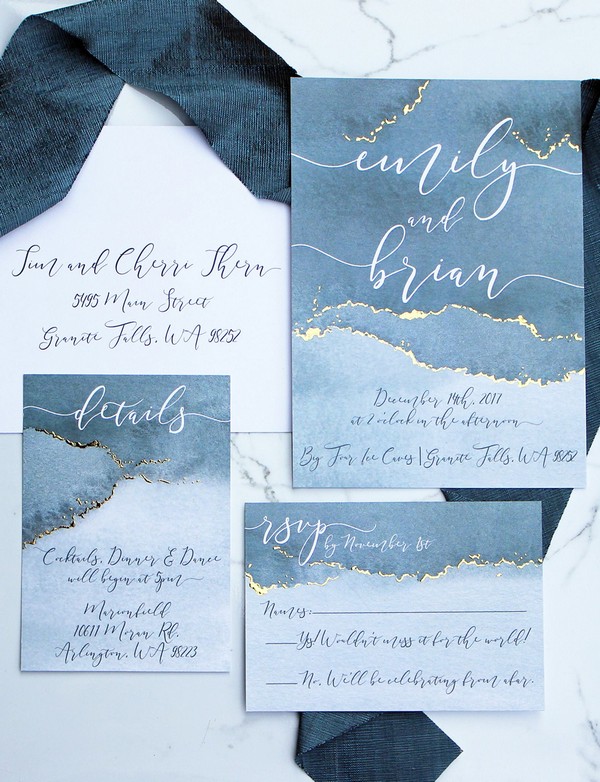 emily
and
brian
December 14th, 2017
at 2 o'clock in the afternoon
Big Four Ice Caves | Granite Falls, WA 98252
Tim and Cherri Thern
5495 Main Street
Granite Falls, WA 98252
details
Cocktails, Dinner & Dance
will begin at 5pm
Marionfield
10611 Moran Rd.
Arlington, WA 98223
rsvp
by November 1st
Names:
Yes! Wouldn't miss it for the world!
No, We'll be celebrating from afar.